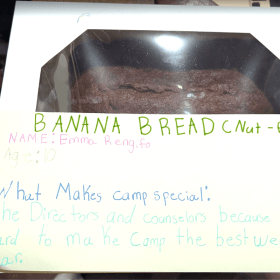 BANANA BREAD (Nut-F
NAME: Emma Rengifo
Age: 10
What Makes camp special:
he Directors and counselors because
ard to make Camp the best we